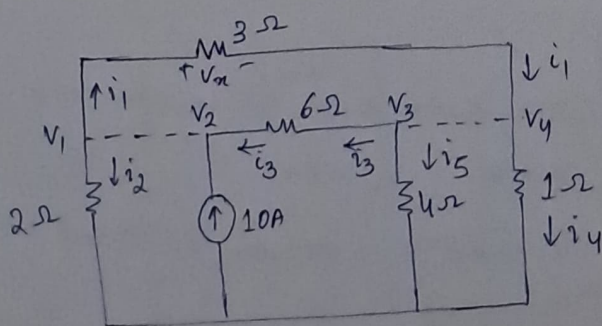 3 Ω
+ Vx -
↑ i1
↓ i1
V1
V2
6 Ω
V3
V4
↓ i2
← i3
← i3
↓ i5
2 Ω
↑ 10A
4 Ω
1 Ω
↓ i4